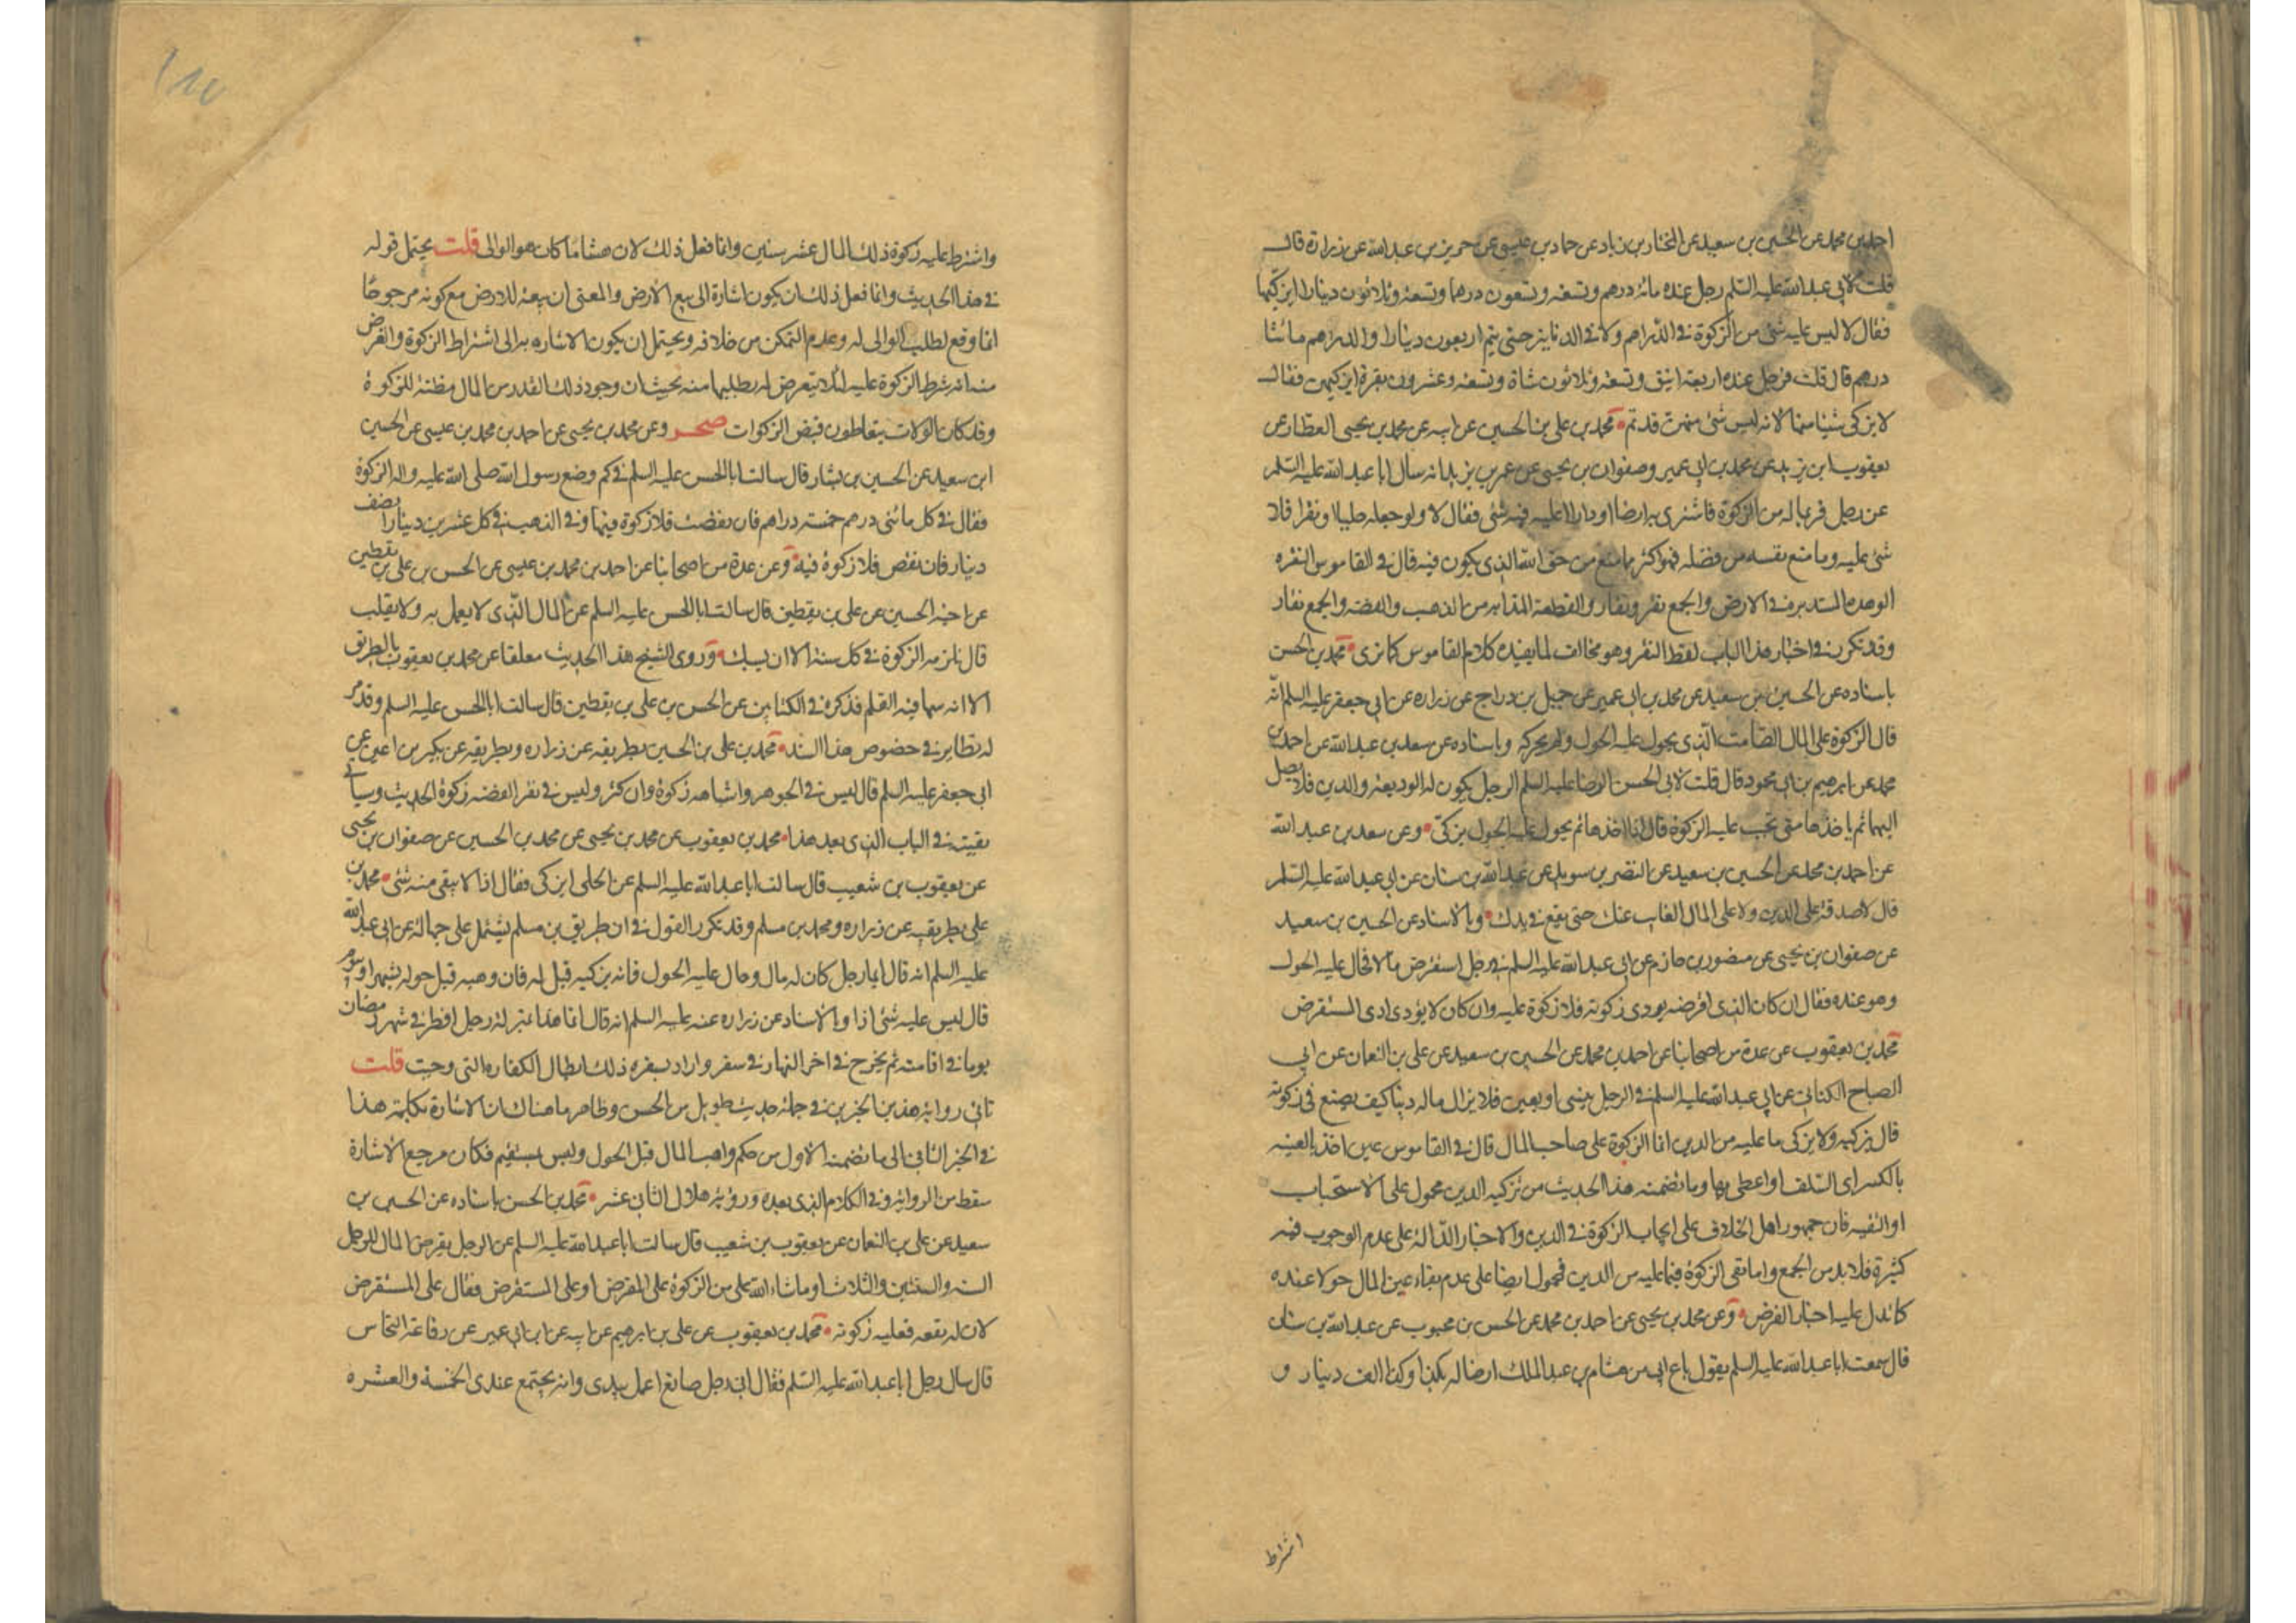 احمد بن محمد عن الحسين بن سعيد عن المختار بن زياد عن حماد بن عيسى عن حريز بن عبدالله عن زرارة قال
قلت لابى عبدالله عليه السلم رجل عنده مائة درهم وتسعة وتسعون درهما وتسعة وثلاثون دينارا ايزكيها
فقال لا ليس عليه شئ من الزكوة في الدراهم ولا في الدنانير حتى يتم اربعون دينارا والدراهم مائتا
درهم قال قلت فرجل عنده اربعة اينق وتسعة وثلاثون شاة وتسعة وعشرون بقرة ايزكيهن فقال
لا يزكى شيئا منها لانه ليس شئ منهن قد تم محمد بن على بن الحسين عن ابيه عن محمد بن يحيى العطار عن
يعقوب ابن يزيد عن محمد بن ابى عمير وصفوان بن يحيى عن عمر بن يزيد انه سال ابا عبدالله عليه السلم
عن رجل فر بماله من الزكوة فاشترى به ارضا او دارا اعليه فيه شئ فقال لا ولو جعله حليا او نقرا فلا
شئ عليه وما منع نفسه من فضله فهو اكثر مما منع من حق الله الذى يكون فيه قال في القاموس النقره
الوهده المستديره في الارض والجمع نقر ونقار والقطعة المذابه من الذهب والفضه والجمع نقار
وقد تكرر في اخبار هذا الباب لفظ النقر وهو مخالف لما يفيده كلام القاموس كما ترى محمد بن الحسن
باسناده عن الحسين بن سعيد عن محمد بن ابى عمير عن جميل بن دراج عن زراره عن ابى جعفر عليه السلم انه
قال الزكوة على المال الصامت الذى يحول عليه الحول ولم يحركه وباسناده عن سعد بن عبدالله عن احمد بن
محمد عن ابرهيم بن ابى محمود قال قلت لابى الحسن الرضا عليه السلم الرجل يكون له الوديعة والدين فلا يصل
اليهما ثم ياخذهما متى تجب عليه الزكوة قال اذا اخذهما ثم يحول عليه الحول يزكى وعن سعد بن عبدالله
عن احمد بن محمد عن الحسين بن سعيد عن النضر بن سويد عن عبدالله بن سنان عن ابى عبدالله عليه السلم
قال لا صدقة على الدين ولا على المال الغايب عنك حتى يقع في يدك وبالاسناد عن الحسين بن سعيد
عن صفوان بن يحيى عن منصور بن حازم عن ابى عبدالله عليه السلم في رجل استقرض مالا فحال عليه الحول
وهو عنده فقال ان كان الذى اقرضه يودى زكوته فلا زكوة عليه وان كان لا يؤدى ادى المستقرض
محمد بن يعقوب عن عدة من اصحابنا عن احمد بن محمد عن الحسين بن سعيد عن على بن النعمان عن ابى
الصباح الكنانى عن ابى عبدالله عليه السلم في الرجل ينسى او يعين فلا يزال ماله دينا كيف يصنع في زكوته
قال يزكيه ولا يزكى ما عليه من الدين انما الزكوة على صاحب المال قال في القاموس عين اخذ بالعينه
بالكسر اى السلف او اعطى بها وما تضمنه هذا الحديث من تزكيه الدين محمول على الاستحباب
او التقيه فان جمهور اهل الخلاف على ايجاب الزكوة في الدين والاخبار الدالة على عدم الوجوب فيه
كثيرة فلا بد من الجمع واما نفى الزكوة فيما عليه من الدين فمحمول ايضا على عدم بقاء عين المال حولا عنده
كما تدل عليه اخبار القرض وعن محمد بن يحيى عن احمد بن محمد عن الحسن بن محبوب عن عبدالله بن سنان
قال سمعت ابا عبدالله عليه السلم يقول باع ابى من هشام بن عبد الملك ارضا له بكذا وكذا الف دينار و
اشترط
واشترط عليه زكوة ذلك المال عشر سنين وانما فعل ذلك لان هشاما كان هو الوالى قلت يحتمل قوله
في هذا الحديث وانما فعل ذلك ان يكون اشارة الى بيع الارض والمعنى ان بيعه للارض مع كونه مرجوحا
انما وقع لطلب الوالى له وعدم التمكن من خلافه ويحتمل ان يكون الاشاره به الى اشتراط الزكوة والغرض
منه انه شرط الزكوة عليه لئلا يتعرض له بطلبها منه بحيث ان وجود ذلك القدر من المال مظنة للزكوة
وقد كان الولات يتعاطون قبض الزكوات صحر وعن محمد بن يحيى عن احمد بن محمد بن عيسى عن الحسين
ابن سعيد عن الحسين بن بشار قال سالت ابا الحسن عليه السلم في كم وضع رسول الله صلى الله عليه واله الزكوة
فقال في كل مائتى درهم خمسة دراهم فان نقصت فلا زكوة فيها وفي الذهب في كل عشرين دينارا نصف
دينار فان نقص فلا زكوة فيه وعن عدة من اصحابنا عن احمد بن محمد بن عيسى عن الحسن بن على بن يقطين
عن اخيه الحسين عن على بن يقطين قال سالت ابا الحسن عليه السلم عن المال الذى لا يعمل به ولا يقلب
قال تلزمه الزكوة في كل سنة الا ان يسبك وروى الشيخ هذا الحديث معلقا عن محمد بن يعقوب بالطريق
الا انه سها فيه القلم فذكره في الكتابين عن الحسن بن على بن يقطين قال سالت ابا الحسن عليه السلم وقد مر
له نظاير في خصوص هذا السند محمد بن على بن الحسين بطريقه عن زراره وبطريقه عن بكير بن اعين عن
ابى جعفر عليه السلم قال ليس في الجوهر واشباهه زكوة وان كثر وليس في نقر الفضه زكوة الحديث وسياتى
بقيته في الباب الذى بعد هذا محمد بن يعقوب عن محمد بن يحيى عن محمد بن الحسين عن صفوان بن يحيى
عن يعقوب بن شعيب قال سالت ابا عبدالله عليه السلم عن الحلى ايزكى فقال اذا لا يبقى منه شئ محمد بن
على بطريقيه عن زراره ومحمد بن مسلم وقد تكرر القول في ان طريق بن مسلم يشتمل على جهالة عن ابى عبدالله
عليه السلم انه قال ايما رجل كان له مال وحال عليه الحول فانه يزكيه قيل له فان وهبه قبل حوله بشهر او بيوم
قال ليس عليه شئ اذا وبالاسناد عن زراره عنه عليه السلم انه قال انما هذا بمنزلة رجل افطر في شهر رمضان
يوما في اقامته ثم يخرج في اخر النهار في سفر واراد بسفره ذلك ابطال الكفاره التى وجبت قلت
تاتى رواية هذين الخبرين في جملة حديث طويل من الحسن وظاهر ما هناك ان الاشارة بكلمة هذا
في الخبر الثانى الى ما تضمنه الاول من حكم واهب المال قبل الحول وليس بمستقيم فكان مرجع الاشارة
سقط من الرواية وفي الكلام الذى بعده ورؤية هلال الثانى عشر محمد بن الحسن باسناده عن الحسين بن
سعيد عن على بن النعمان عن يعقوب بن شعيب قال سالت ابا عبدالله عليه السلم عن الرجل يقرض المال للرجل
السنه والسنتين والثلاث او ماشاء الله على من الزكوة على المقرض او على المستقرض فقال على المستقرض
لان له نفعه فعليه زكوته محمد بن يعقوب عن على بن ابرهيم عن ابيه عن ابن ابى عمير عن رفاعة النخاس
قال سال رجل ابا عبدالله عليه السلم فقال انى رجل صانع اعمل بيدى وانه يجتمع عندى الخمسة والعشره